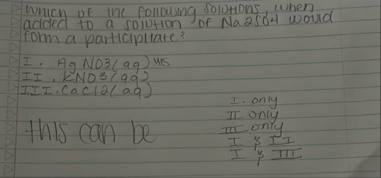 Which of the following solutions, when
added to a solution of Na2SO4 woud
form a participitate?
I. AgNO3(aq) yes
II. KNO3(aq)
III. CaCl2(aq)
I. only
II only
III only
I & II
I & III
this can be